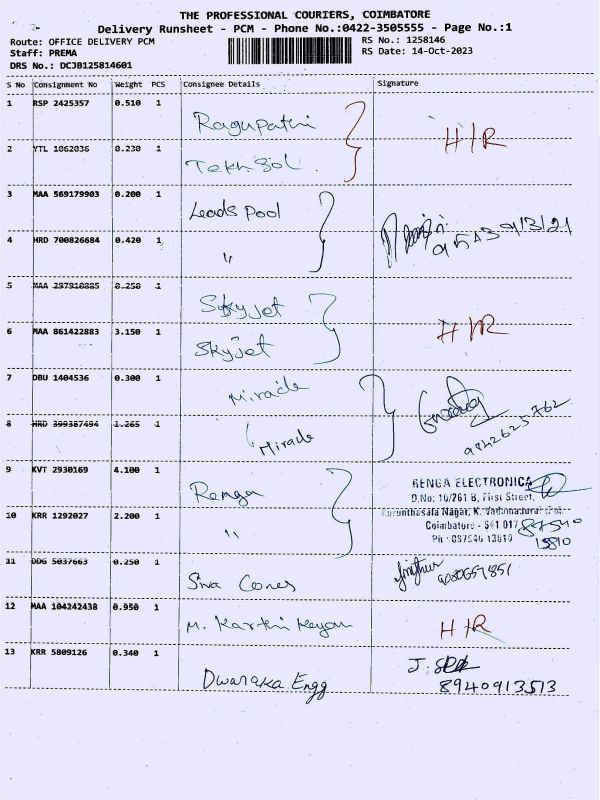 THE PROFESSIONAL COURIERS, COIMBATORE
Delivery Runsheet - PCM - Phone No.:0422-3505555 - Page No.:1
Route: OFFICE DELIVERY PCM
RS No.: 1258146
Staff: PREMA
RS Date: 14-Oct-2023
DRS No.: DCJB125814601
S No Consignment No Weight PCS Consignee Details Signature
1 RSP 2425357 0.510 1 Ragupathi
H/R
2 YTL 1062036 0.230 1 Tekhsol.
3 MAA 569179903 0.200 1 Leads Pool
4 HRD 700826684 0.420 1 "
5 MAA 297910885 0.250 1 Skyjet
H/R
6 MAA 861422883 3.150 1 Skyjet
7 DBU 1404536 0.300 1 Miracle
8 HRD 399387494 1.265 1 Miracle
9842625762
9 KVT 2930169 4.100 1 Renga
RENGA ELECTRONICA
D.No: 10/261 B, First Street,
10 KRR 1292027 2.200 1 "
Nagar, K. Vadamadurai
Coimbatore - 641 017
87540
13810
11 DDG 5037663 0.250 1 Siva Cones
12 MAA 104242438 0.950 1 M. Karthi Keyan H/R
13 KRR 5809126 0.340 1 Dwaraka Engg
J.
8940913513